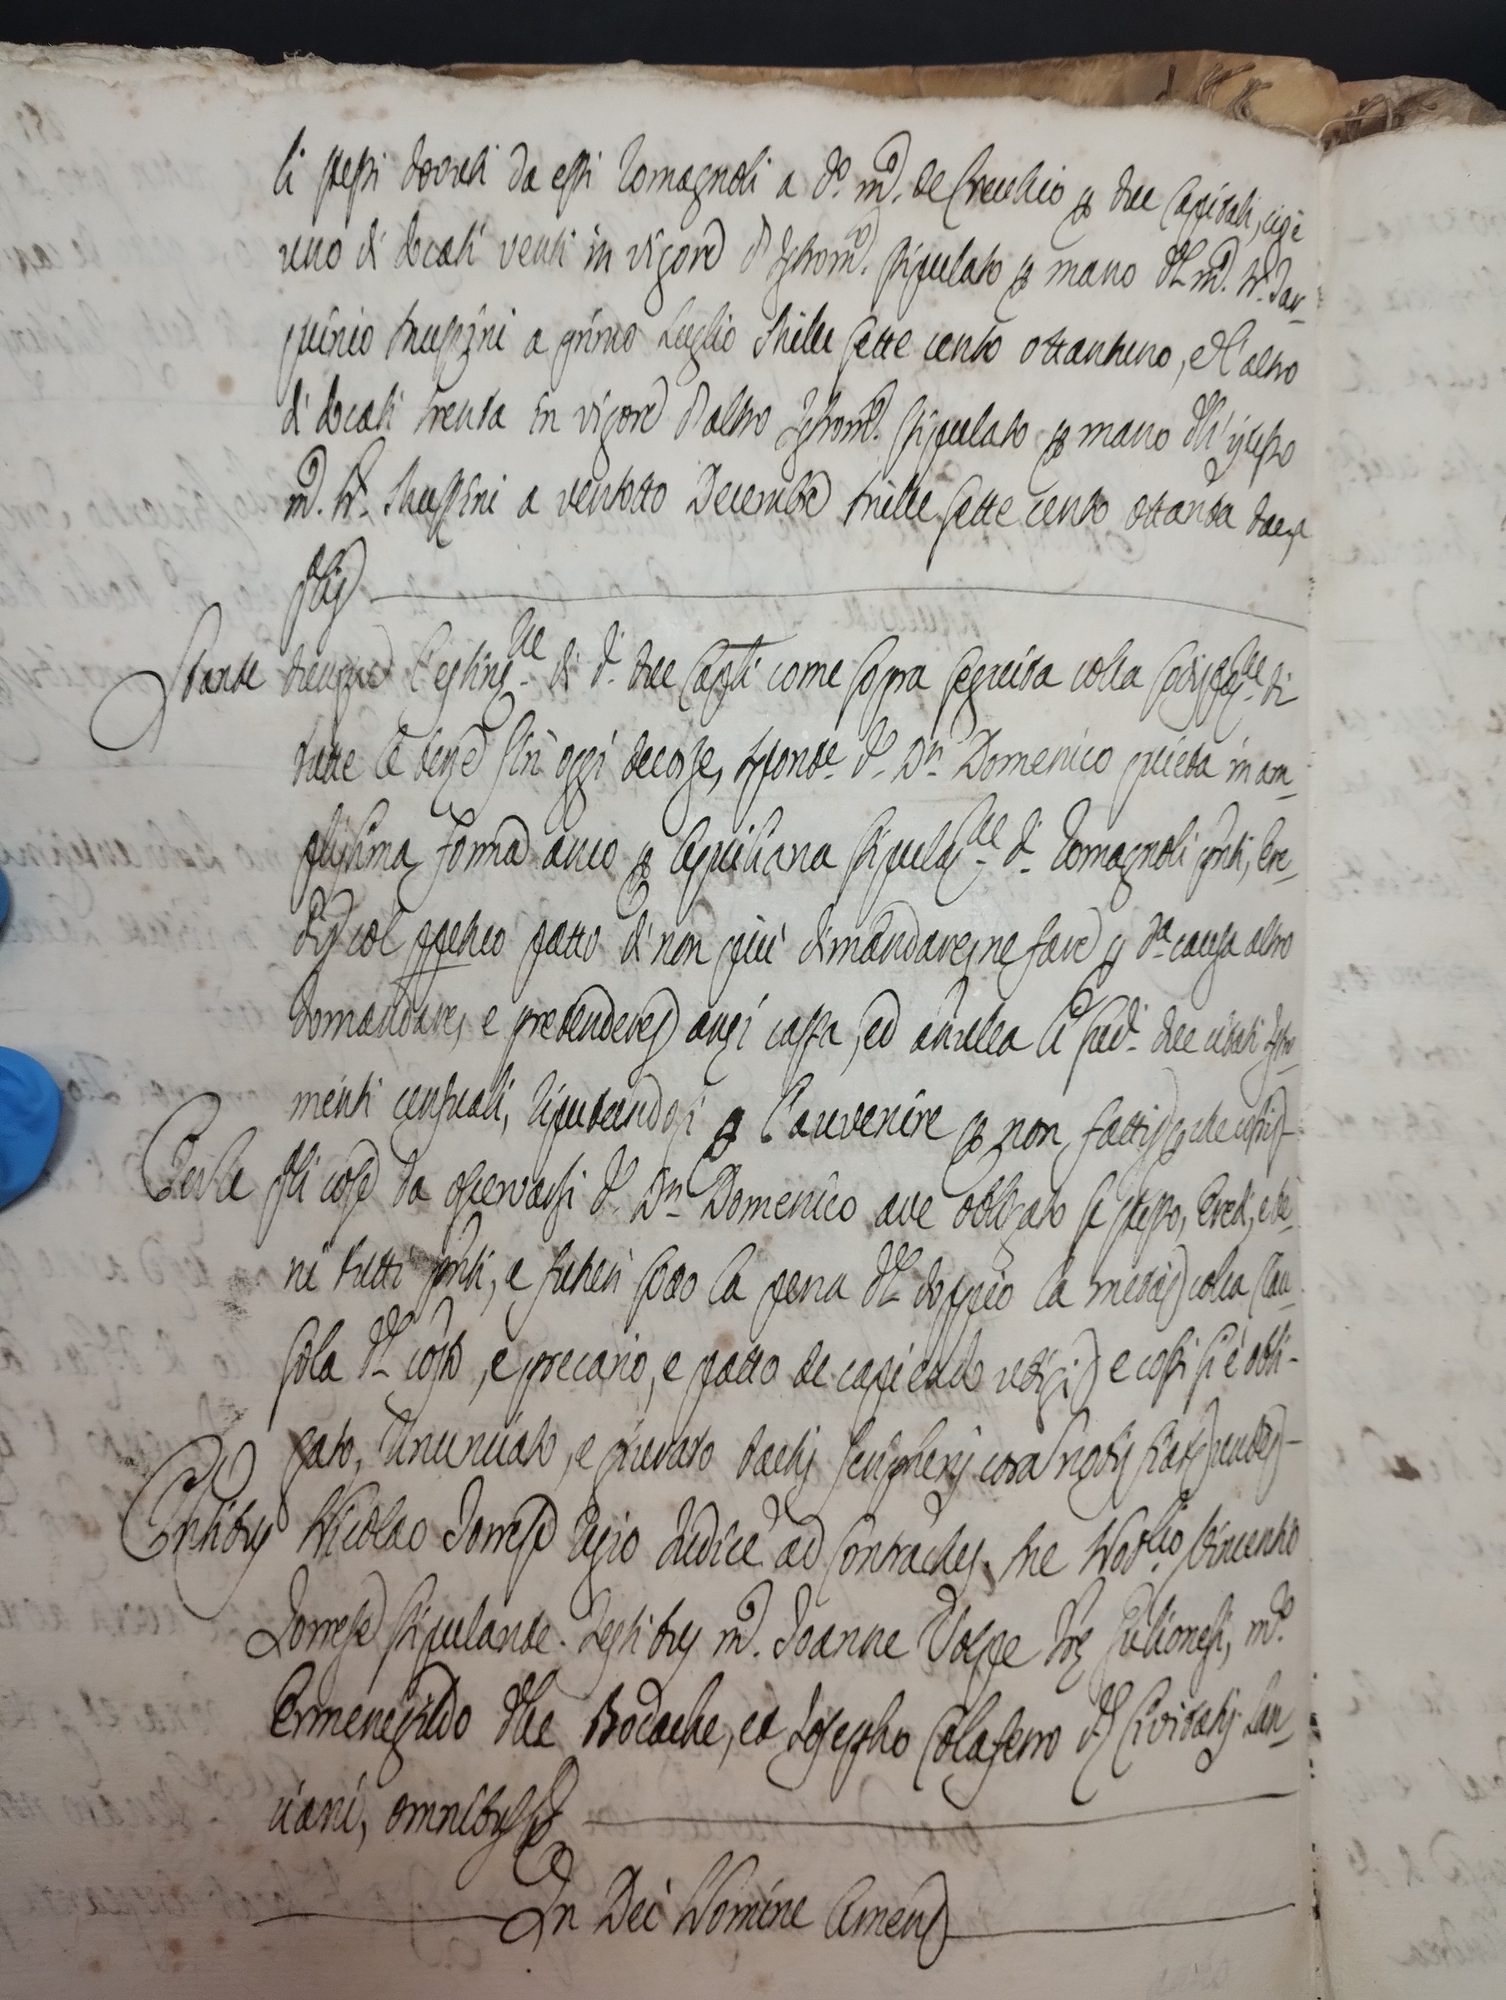 li stessi dovuti da essi Romagnoli a d.º m.º de Crecchio p due Capitali, cioè
uno di docati venti in vigore d'Istrom.º stipulato p mano del m.º N.r Tar-
quinio a primo Luglio mille sette cento ottantuno, e l'altro
di docati trenta in vigore d'altro Istrom.º stipulato p mano dell'istesso
m.º N.r a ventotto Decembre mille sette cento ottanta due
Stante dunque l'estinz.ne di d.i due Cap.li come sopra seguita colla di
tutte le terze sin oggi decorse, d.º D.n Domenico quieta in am-
plissima forma anco p Aquiliana stipulaz.ne d.i Romagnoli p.nti, Ere-
di col patto di non più dimandare, ne fare p d.a causa altro
domandare, e pretendere, anzi cassa, ed annulla li due citati Istro-
menti censuali, riputandosi p l'avvenire p non fatti
Per le q.li cose da osservarsi d.º D.n Domenico ave obbligato se stesso, Eredi, e be-
ni tutti p.nti, e futuri sotto la pena del doppio la metà colla Clau-
sola del cos.to, e precario, e patto de capiendo e cossì si è obbli-
gato, rinunciato, e giurato tactis scripturis
P.ntibus Nicolao Torrese Regio Iudice ad Contractus, me Not.rio Vincentio
Torrese stipulante. Testibus m.º Joanne Volpe m.º
Ermenegildo delle Bodache, et Josepho Colaserro Civitatis Lan-
ciani, omnibus
In Dei Nomine Amen